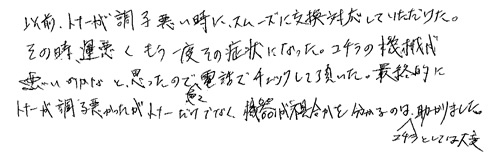 以前、トナーが調子悪い時に、スムーズに交換対応していただけた。
その時運悪くもう一度その症状になった。コチラの機械が
悪いのかなと、思ったので急ぎ電話でチェックして頂いた。最終的に
トナーが調子悪かったがトナーだけでなく機器が不具合かを分かるのは、助かりました。
コチラとしては大変